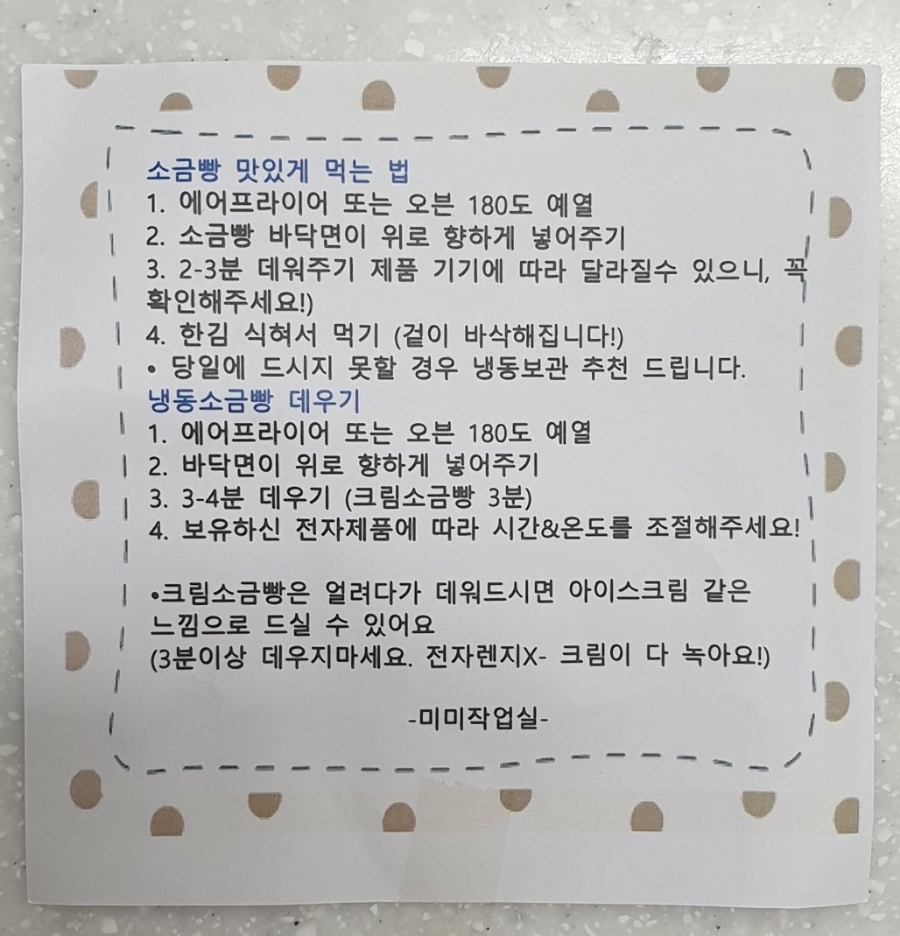 소금빵 맛있게 먹는 법
1. 에어프라이어 또는 오븐 180도 예열
2. 소금빵 바닥면이 위로 향하게 넣어주기
3. 2-3분 데워주기 제품 기기에 따라 달라질수 있으니, 꼭
확인해주세요!)
4. 한김 식혀서 먹기 (겉이 바삭해집니다!)
• 당일에 드시지 못할 경우 냉동보관 추천 드립니다.
냉동소금빵 데우기
1. 에어프라이어 또는 오븐 180도 예열
2. 바닥면이 위로 향하게 넣어주기
3. 3-4분 데우기 (크림소금빵 3분)
4. 보유하신 전자제품에 따라 시간&온도를 조절해주세요!
•크림소금빵은 얼려다가 데워드시면 아이스크림 같은
느낌으로 드실 수 있어요
(3분이상 데우지마세요. 전자렌지X- 크림이 다 녹아요!)
-미미작업실-